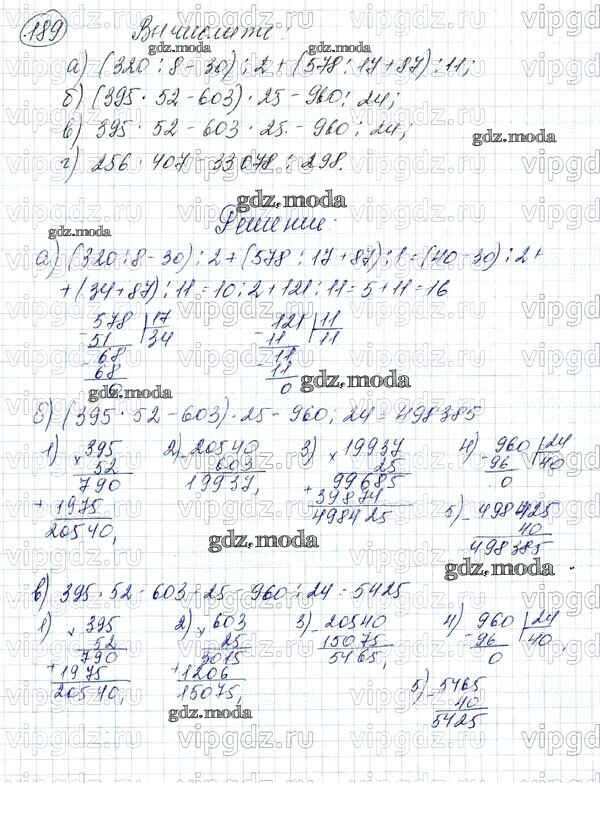 189 Вычислите:
а) (320 : 8 - 30) : 2 + (578 : 17 + 87) : 11;
б) (395 · 52 - 603) · 25 - 960 : 24;
в) 395 · 52 - 603 · 25 - 960 : 24;
г) 256 · 407 - 33078 : 298.
gdz.moda
gdz.moda
gdz.moda
gdz.moda
gdz.moda
Решение:
а) (320 : 8 - 30) : 2 + (578 : 17 + 87) : 1 = (40 - 30) : 2 +
+ (34 + 87) : 11 = 10 : 2 + 121 : 11 = 5 + 11 = 16
- 578 | 17
51 34
- 68
68
0
- 121 | 11
11 11
- 11
11
0
gdz.moda
gdz.moda
б) (395 · 52 - 603) · 25 - 960 : 24 = 498385
1) × 395
52
790
+ 1975
20540,
2) - 20540
603
19937,
3) × 19937
25
99685
+ 39874
498425
4) - 960 | 24
96 40
0
5) - 498425
40
498385
gdz.moda
gdz.moda
в) 395 · 52 - 603 · 25 - 960 : 24 = 5425
1) × 395
52
790
+ 1975
20540,
2) × 603
25
3015
+ 1206
15075,
3) - 20540
15075
5465,
4) - 960 | 24
96 40,
0
5) - 5465
40
5425
gdz.moda
gdz.moda
vipgdz.ru